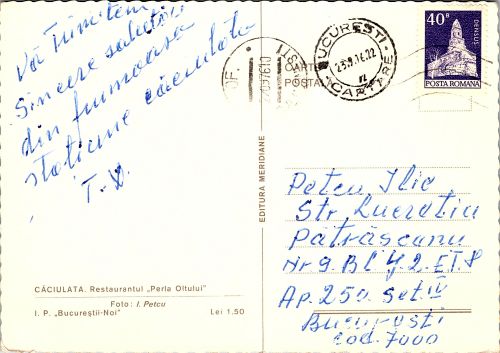 Vă Trimitem
Sincere salutări
din frumoasa
stațiune căciulata
T.V.
CĂCIULATA. Restaurantul „Perla Oltului”
Foto: I. Petcu
I. P. „Bucureștii-Noi” Lei 1.50
EDITURA MERIDIANE
CARTE
POȘTALĂ
BUCUREȘTI
CARTARE
40B
DENSUȘ
POSTA ROMANA
Petcu Ilie
Str. Lucretiu
Pătrășcanu
Nr 9. Bl Y.2. ET. 8
Ap. 250. Sct IV
București
Cod. 7000